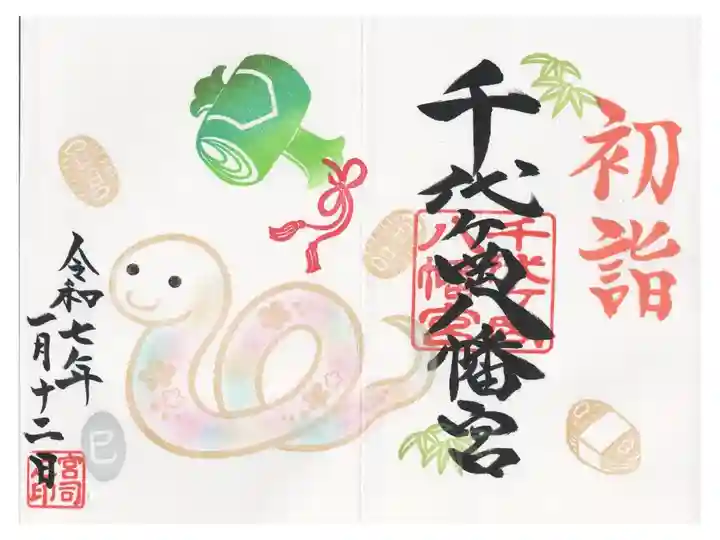 初詣
千代ヶ岡八幡宮
千代ヶ岡
八幡宮
令和七年
一月十二日
巳
宮司
之印